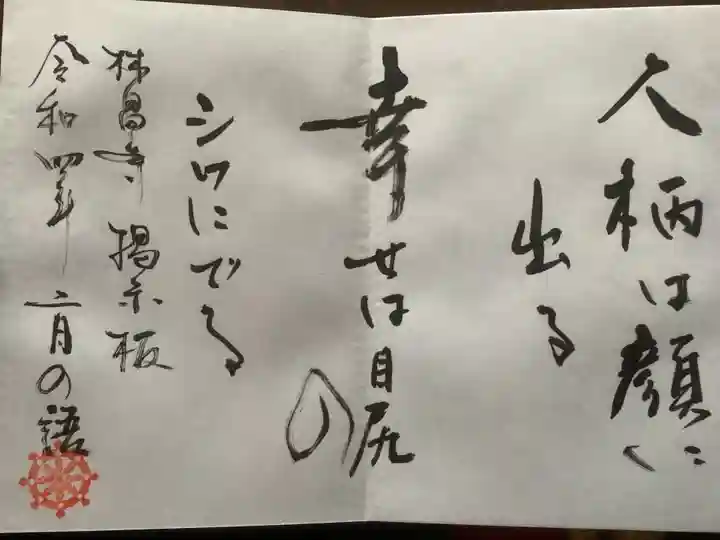 人柄は顔に
出る
幸せは目尻
の
シワにでる
林昌寺 掲示板
令和四年 二月の語